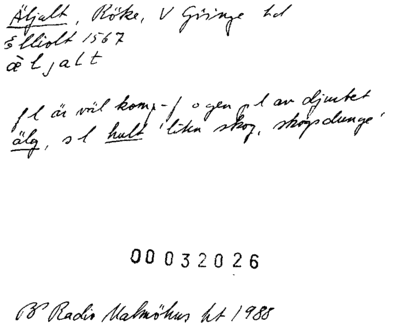 Äljalt, Röke, V Göinge hd
Elliolt 1567
æ̀ljalt
fl är väl komp-f o gen pl av djurbet
älg, s l hult 'liten skog, skogsdunge'
00032026
BP Radio Malmöhus ht 1988